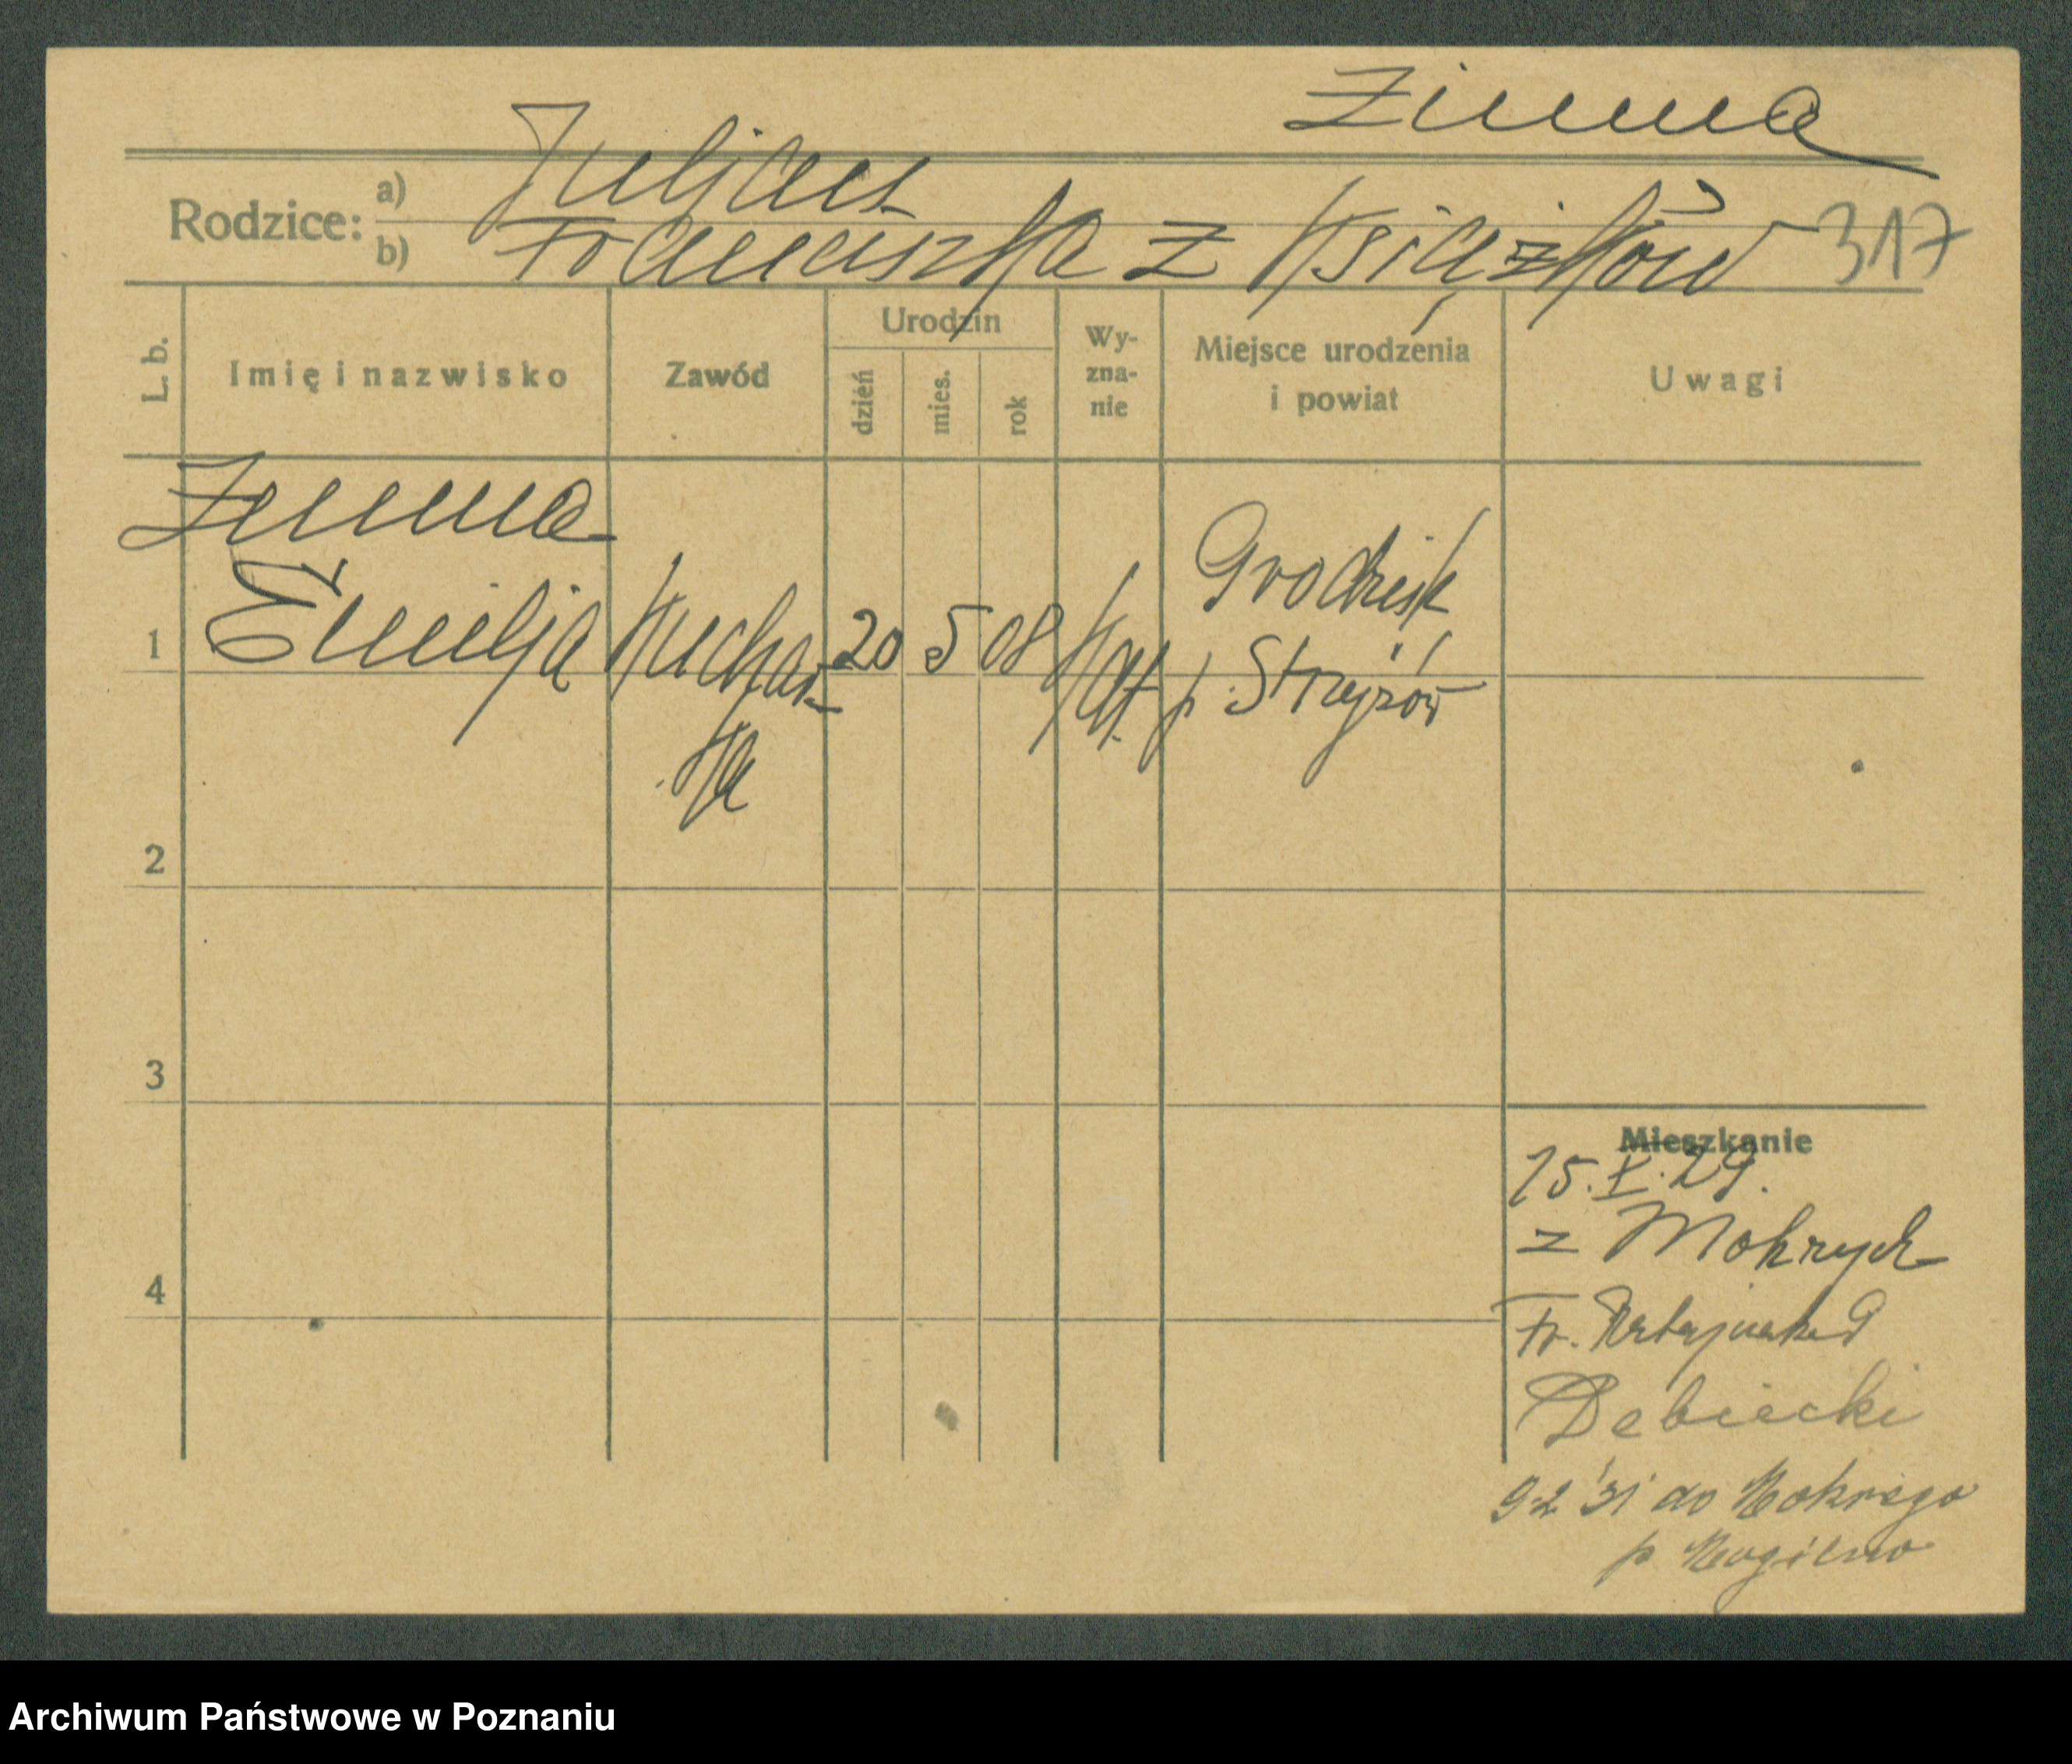 Zimma
Rodzice: a) Juljan
b) Franciszka z Książków 317
L. b. Imię i nazwisko Zawód Urodzin dzień mies. rok Wy-zna-nie Miejsce urodzenia i powiat Uwagi
Zimma
1 Emilja Kuchar- 20 5 08 Kat. Grodzisk
ka p. Strzyżów
2
3
Mieszkanie
15.X.29.
z Mokrych
4
Fr.
Debiecki
9.2 '31 do Mokrego
p Mogilno
Archiwum Państwowe w Poznaniu